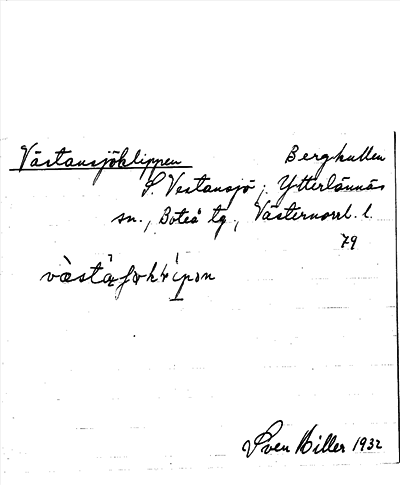 Västansjöklippen Bergkullen
S. Vestansjö, Ytterlännäs
sn., Boteå tg., Västernorrl. l.
79
Sven Hiller 1932